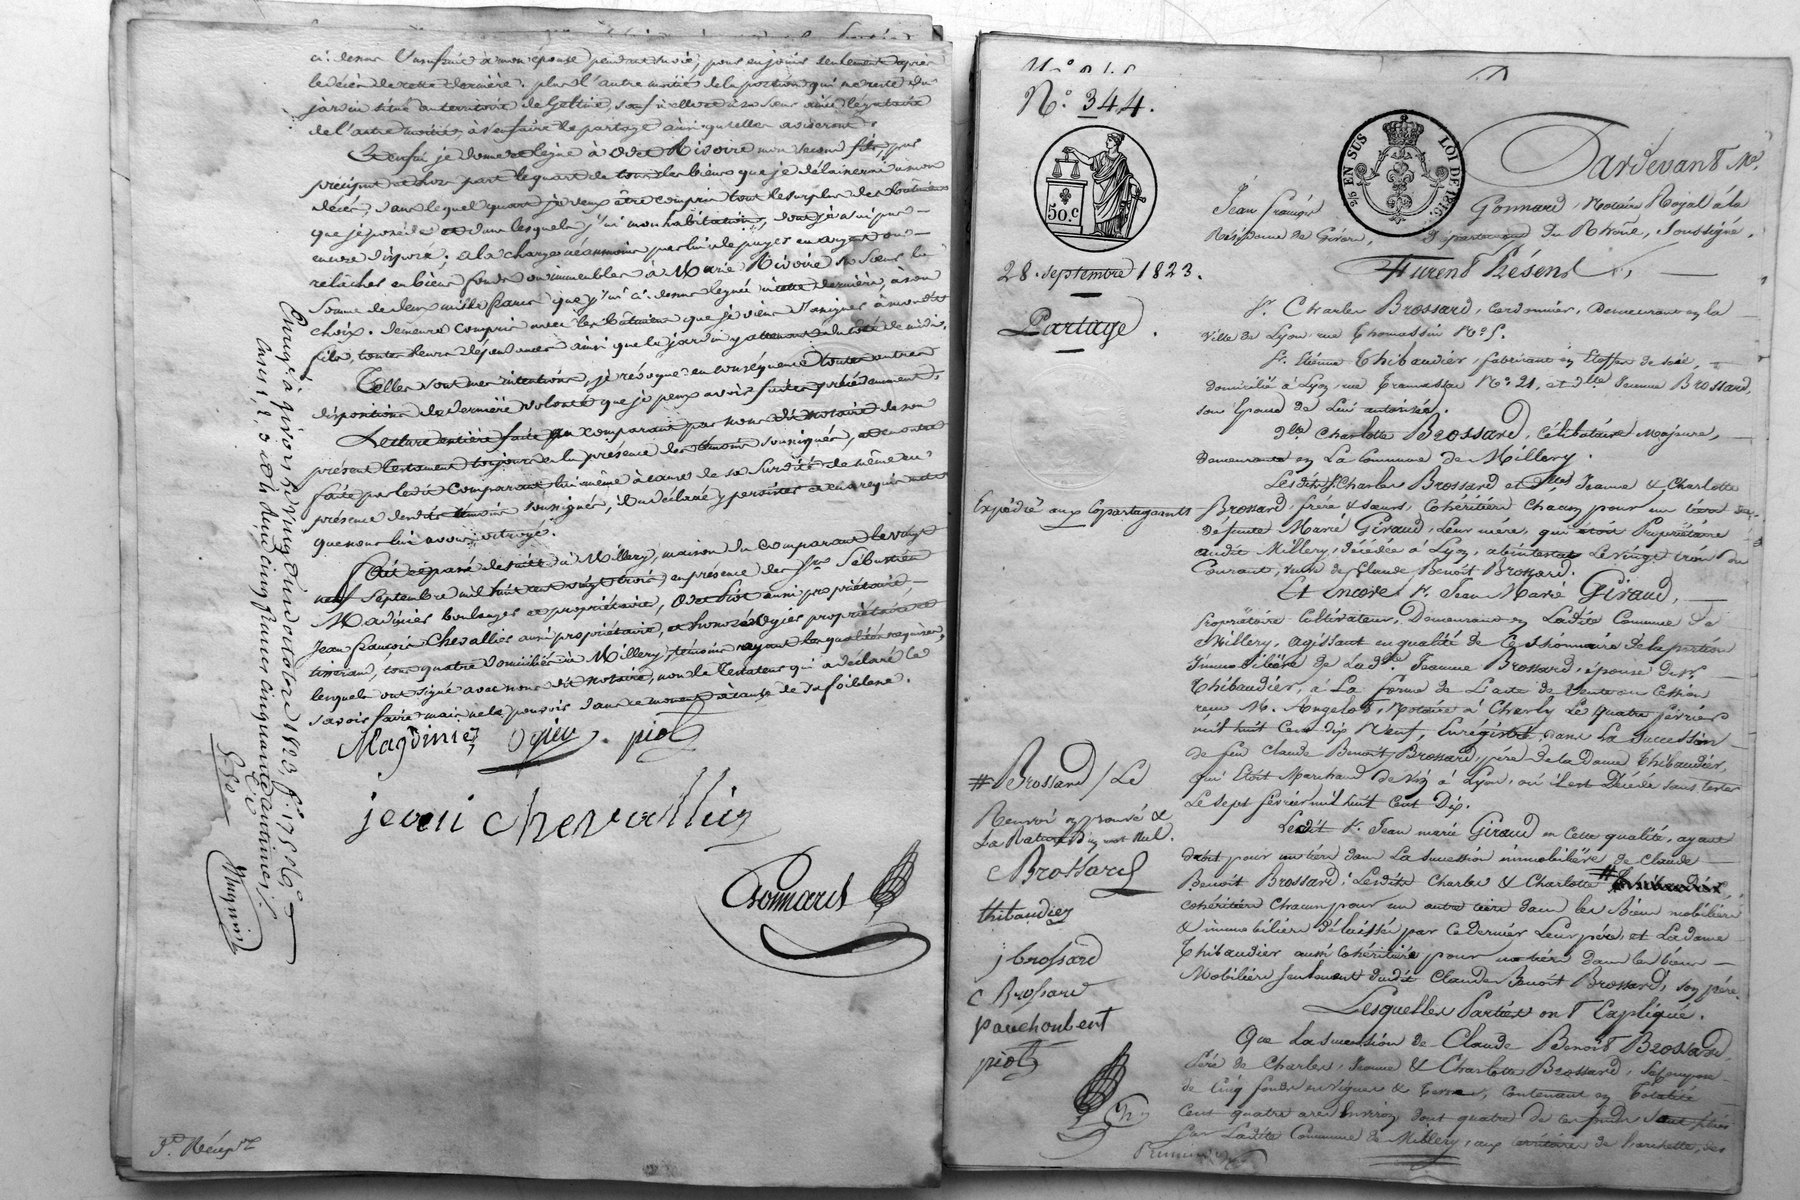 ci-dessus l'usufruit à mon épouse pendant sa vie, pour en jouir seulement après
le décès de cette dernière. plus l'autre moitié de la portion qui me reste du
jardin situé au territoire de Gettine, sauf à elle et à sa sœur aussi légataire
de l'autre moitié, à s'en faire le partage ainsi qu'elles aviseront.
Enfin je donne et lègue à Odet Rivoire mon second fils, par
préciput et hors part le quart de tous les biens que je délaisserai à mon
décès, dans lequel quart je veux être compris tout le surplus des bâtiments
que je possède et dans lesquels j'ai mon habitation, dont je n'ai pas
encore disposé, à la charge néanmoins par lui de payer en argent ou
relâcher en biens fonds ou immeubles à Marie Rivoire sa sœur la
somme de deux mille francs que j'ai ci-dessus léguée à cette dernière, à son
choix. demeure compris avec les bâtiments que je viens d'assigner à mon dit
fils, toutes leurs dépendances ainsi que le jardin y attenant du côté de midi.
Telles sont mes intentions, je révoque en conséquence toutes autres
dispositions de dernière volonté que je peux avoir faites précédemment.
Lecture entière faite au comparant par nous dit notaire de son
présent testament toujours en la présence des témoins soussignés, et en outre
faite par ledit comparant lui même à cause de sa surdité de même en
présence desdits témoins soussignés, il a déclaré y persister et en a requis acte
que nous lui avons octroyé.
Fait et passé de suite à Millery, maison du comparant le vingt
neuf septembre mil huit cent vingt trois, en présence des Srs Sébastien
Magdinier boulanger et propriétaire, Odet Piot aussi propriétaire,
Jean François Chevallier aussi propriétaire, et honoré Ogier propriétaire et
tisserand, tous quatre domiciliés à Millery, témoins ayant les qualités requises,
lesquels ont signé avec nous dit notaire, non le testateur qui a déclaré le
savoir faire mais ne le pouvoir dans ce moment à cause de sa foiblesse.
Magdinier Ogier. piot
jean chevallier
Gonnard
Enreg.é à givors le cinq d'octobre 1823 f.° 175
cases 1, 2, 3 et 4 reçu cinq francs cinquante centimes
N° 344.
50.c
28. septembre 1823.
Partage.
Expédié aux Copartageants
EN SUS LOI DE 1816.
Pardevant Me
Jean françois Gonnard, Notaire Royal à la
Résidence de Givors, département du Rhône, soussigné,
Furent Présens
Sr. Charles Brossard, Cordonnier, Demeurant en la
ville de Lyon rue Thomassin N° 5.
Sr. Etienne Thibaudier, fabricant en Etoffes de soie,
domicilié à Lyon, rue Tramassac N° 21, et dlle Jeanne Brossard,
son Epouse de Lui autorisée.
Dlle Charlotte Brossard, Célibataire Majeure,
demeurante en La Commune de Millery.
Lesdits Sr Charles Brossard et Dlles Jeanne & Charlotte
Brossard, frère & sœurs, Cohéritiers Chacun pour un tiers de
défunte Marie Giraud, Leur mère, qui étoit Propriétaire
audit Millery, décédée à Lyon, abintestat Le vingt trois du
Courant, veuve de Claude Benoît Brossard.
Et Encore Sr. Jean Marie Giraud,
Propriétaire Cultivateur, Demeurant en Ladite Commune de
Millery, agissant en qualité de Cessionnaire de la portion
Immobilière de Ladite Jeanne Brossard, épouse du Sr
Thibaudier, à La forme de L'acte de Vente ou Cession
reçu M. Angelot, Notaire à Charly Le quatre février
mil huit Cent dix Neuf, Enregistré, dans La Succession
de feu Claude Benoît Brossard, père de la Dame Thibaudier,
qui Etoit Marchand de vin à Lyon, où il est Décédé sans tester
Le sept février mil huit Cent Dix.
Ledit Sr. Jean marie Giraud en Cette qualité, ayant
droit pour un tiers dans La succession immobilière de Claude
Benoît Brossard; Lesdits Charles & Charlotte #
cohéritiers Chacun pour un autre tiers dans les Biens mobiliers
& immobiliers délaissés par Ce dernier Leur père, et La dame
Thibaudier aussi Cohéritière pour un tiers dans les biens
Mobiliers seulement dudit Claude Benoît Brossard, son père.
Lesquelles Parties ont Expliqué.
Que La succession de Claude Benoît Brossard,
Père de Charles, Jeanne & Charlotte Brossard, se compose
de Cinq fonds en vignes & terres, Contenant en Totalité
Cent quatre ares Environ dont quatre de ces fonds sont situés
sur Ladite Commune de Millery, aux territoires de
# Brossard / Le
Renvoi approuvé &
La Rature d'un mot Nul.
C Brossard
thibaudier
j brossard
C Brossard
pauchoubert
piot